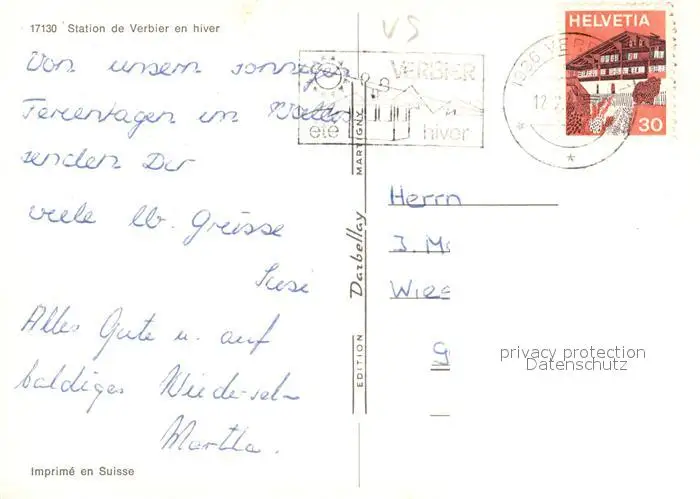 17130 Station de Verbier en hiver
VS
Von unsern sonnigen
Ferientagen im Wallis
senden Dir
viele lb. Grüsse
Susi
Alles Gute u. auf
baldiges Wiedersehn
Martha.
Imprimé en Suisse
VERBIER
été hiver
EDITION Darbellay MARTIGNY
HELVETIA
30
1936 VERBIER
12
Herrn
J. M
Wies
9
privacy protection
Datenschutz